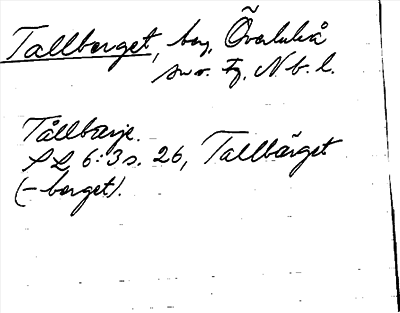 Tallberget, by, Överluleå
sn. Tg. Nb. l.
Tållbärje.
SL 6:3 s. 26, Tallbärget
(-berget).